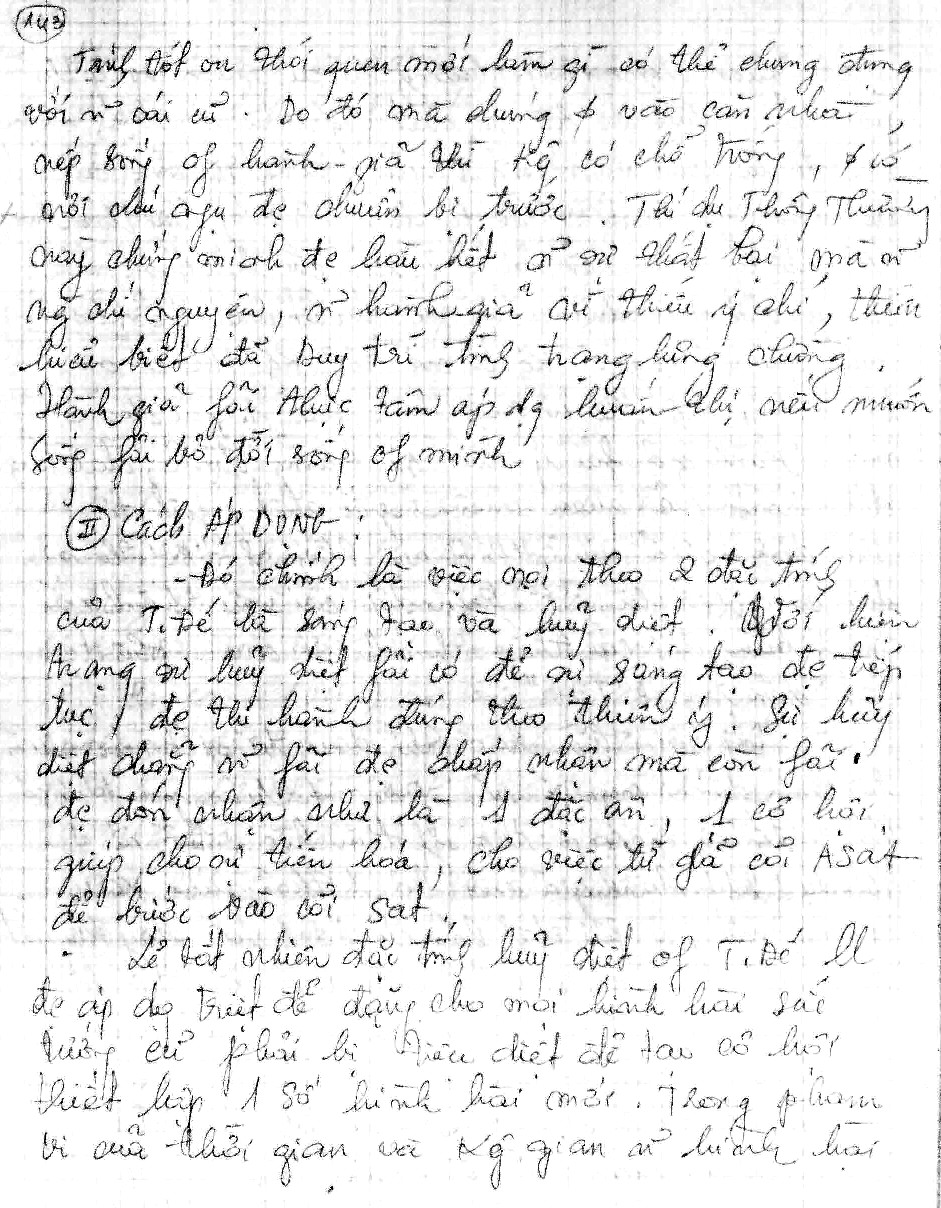 143
Tánh tốt or thói quen mới làm gì có thể chung đụng
với n~ cái cũ. Do đó mà chúng ϕ vào căn nhà,
nếp sống of hành-giả thì Kg có chỗ trống, ϕ có
nơi chú ngụ đc chuẩn bị trước. Thí dụ Thông Thường
này chứng minh đc hầu hết n~ sự thất bại mà n~
ng chí nguyện, n~ hành giả vì thiếu ý chí, thiếu
hiểu biết đã Duy trì tình trạng lừng chừng.
Hành giả fải thực tâm áp dg huấn thị nếu muốn
sống fải bỏ đời sống of mình
II Cách ÁP DỤNG:
- Đó chính là việc noi theo 2 đặc tính
của T.Đế là sáng tạo và huỷ diệt. Dưới hiện
trạng sự huỷ diệt fải có để sự sáng tạo đc tiếp
tục, đc thi hành đúng theo thiên ý. Sự hủy
diệt chẳng n~ fải đc chấp nhận mà còn fải
đc đón nhận như là 1 đặc ân, 1 cơ hội
giúp cho sự tiến hoá, cho việc từ giã cõi Asat
để bước vào cõi Sat.
Lẽ tất nhiên đặc tính huỷ diệt of T.Đế
đc áp dg triệt để đặng cho mọi hình hài sắc
tướng cũ phải bị tiêu diệt để tạo cơ hội
thiết lập 1 số hình hài mới. Trong phạm
vi của thời gian và Kg gian n~ hình hài